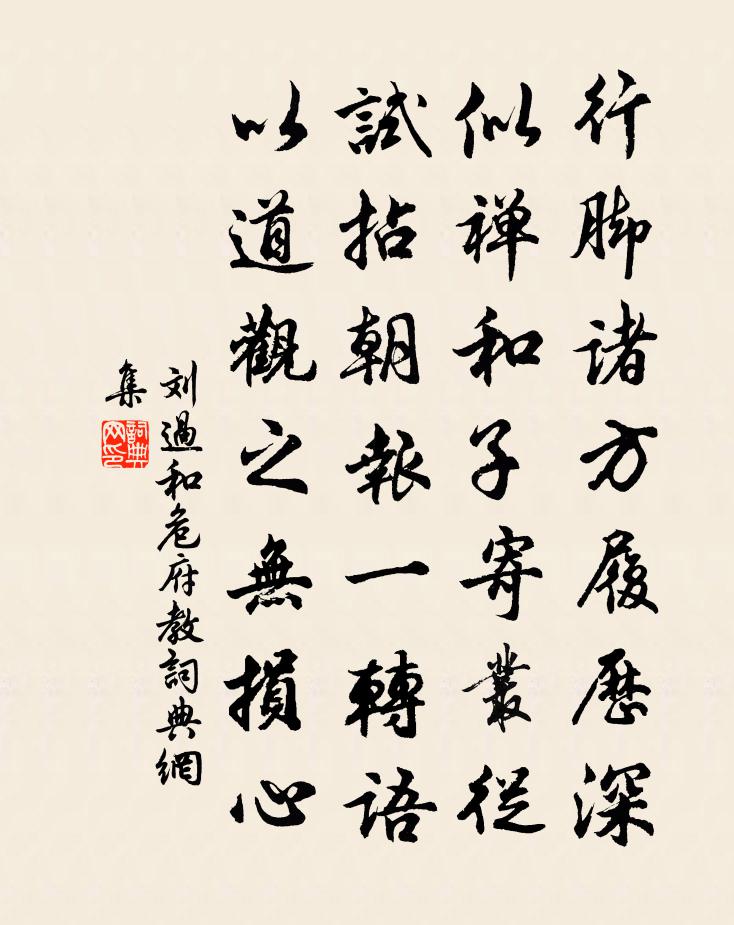 行脚諸方履歷深
似禅和子寄叢從
試拈朝報一轉語
以道觀之無損心
刘過和危府教詞典網
集
詞典
网印